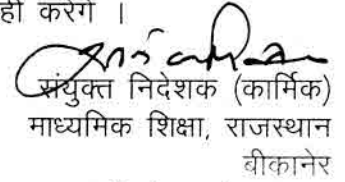 ही करेगे ।
संयुक्त निदेशक (कार्मिक)
माध्यमिक शिक्षा, राजस्थान
बीकानेर